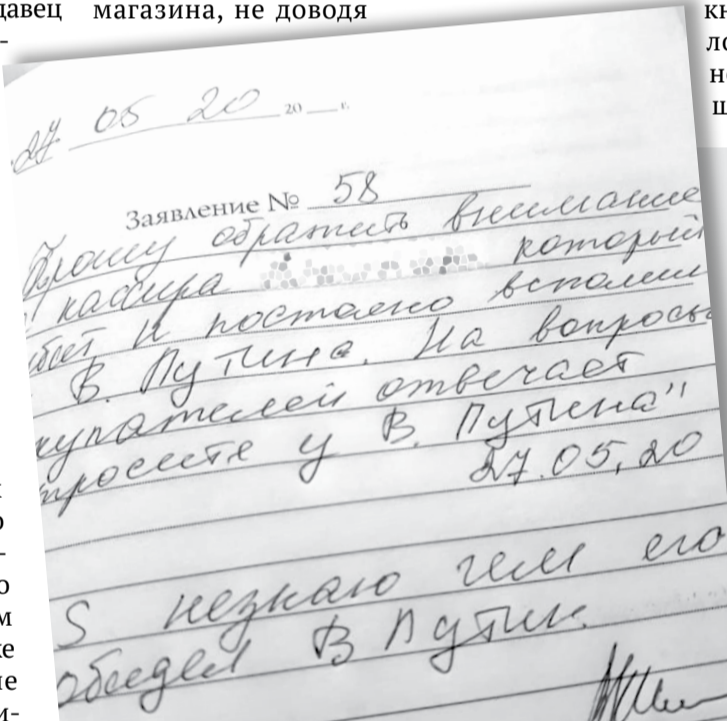 давец магазина, не доводя
27 05 20 20 г.
Заявление № 58
Прошу обратить внимание
кассира который
и постояно вспомин
В. Путина. На вопросы
купателей отвечает
просите у В. Путина"
27.05.20
S незнаю чем его
обедел В Путин.